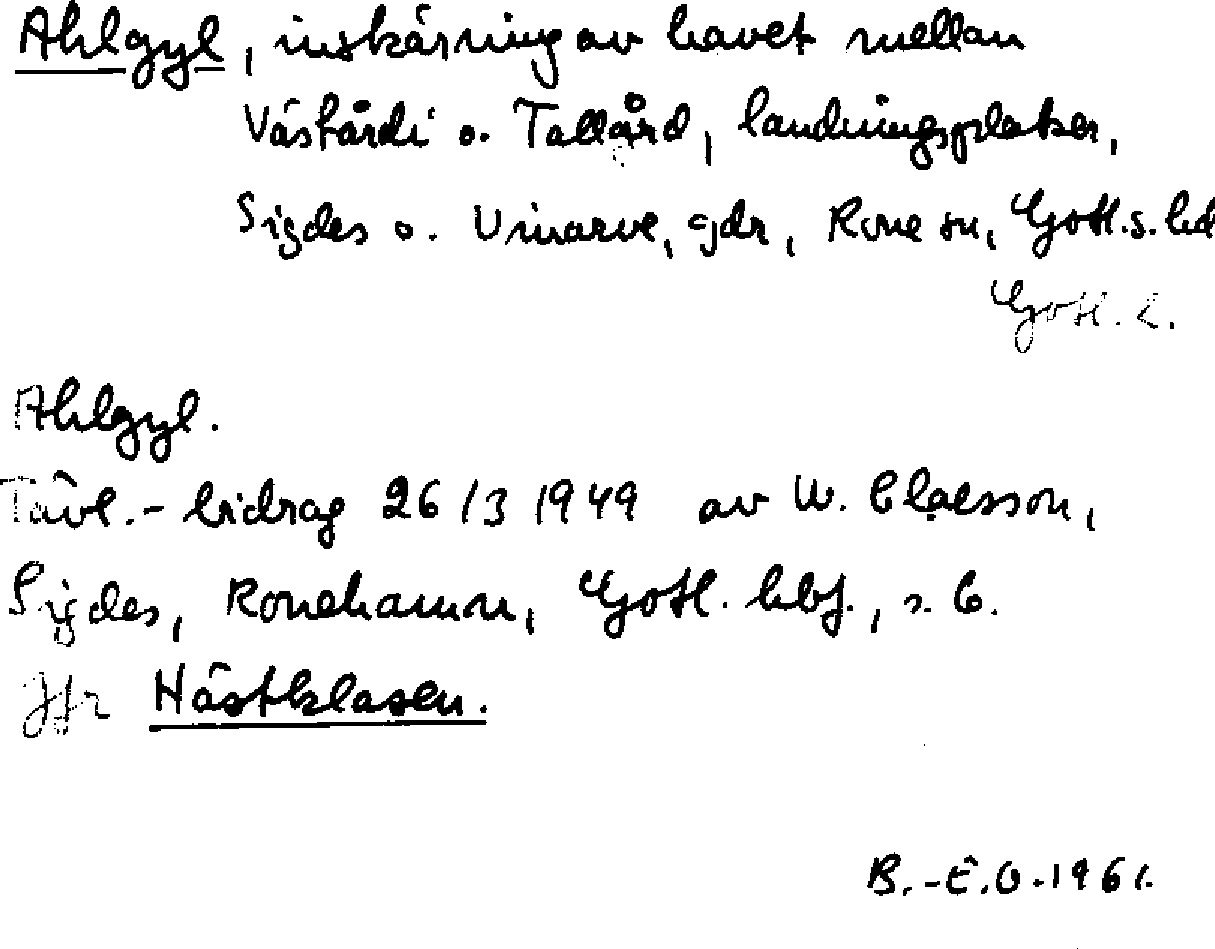 Ahlgyl, inskärning av havet mellan
Västårdi o. Tallård, landningsplatser,
Sigdes o. Uinarve, gdr, Rone sn, Gotl.s. hd
Gotl. l.
Ahlgyl.
Tävl.-bidrag 26/3 1949 av W. Claesson,
Sigdes, Ronehamn, Gotl. hbf., s. 6.
Jfr Hästklasen.
B.-E.O. 1961.